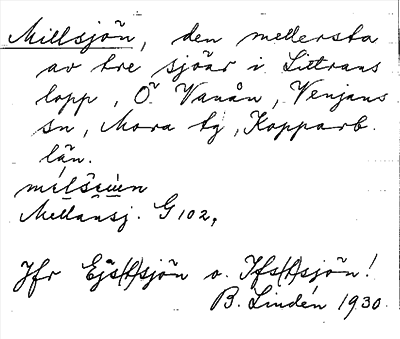 Millsjön, den mellersta
av tre sjöar i Littrans
lopp, Ö. Vanån, Venjans
sn, Mora tg, Kopparb.
län.
Mellansj. G 102,
Jfr Ejs(t)sjön o. Ifs(t)sjön!
B. Lindén 1930.